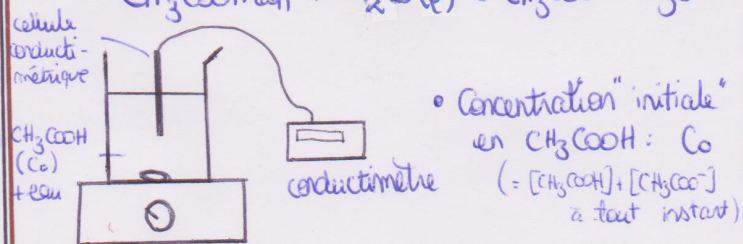 cellule
conducti-
métrique
CH3COOH
(Co)
+ eau
conductimètre
• Concentration "initiale"
en CH3COOH : Co
(= [CH3COOH] + [CH3COO-]
à tout instant)